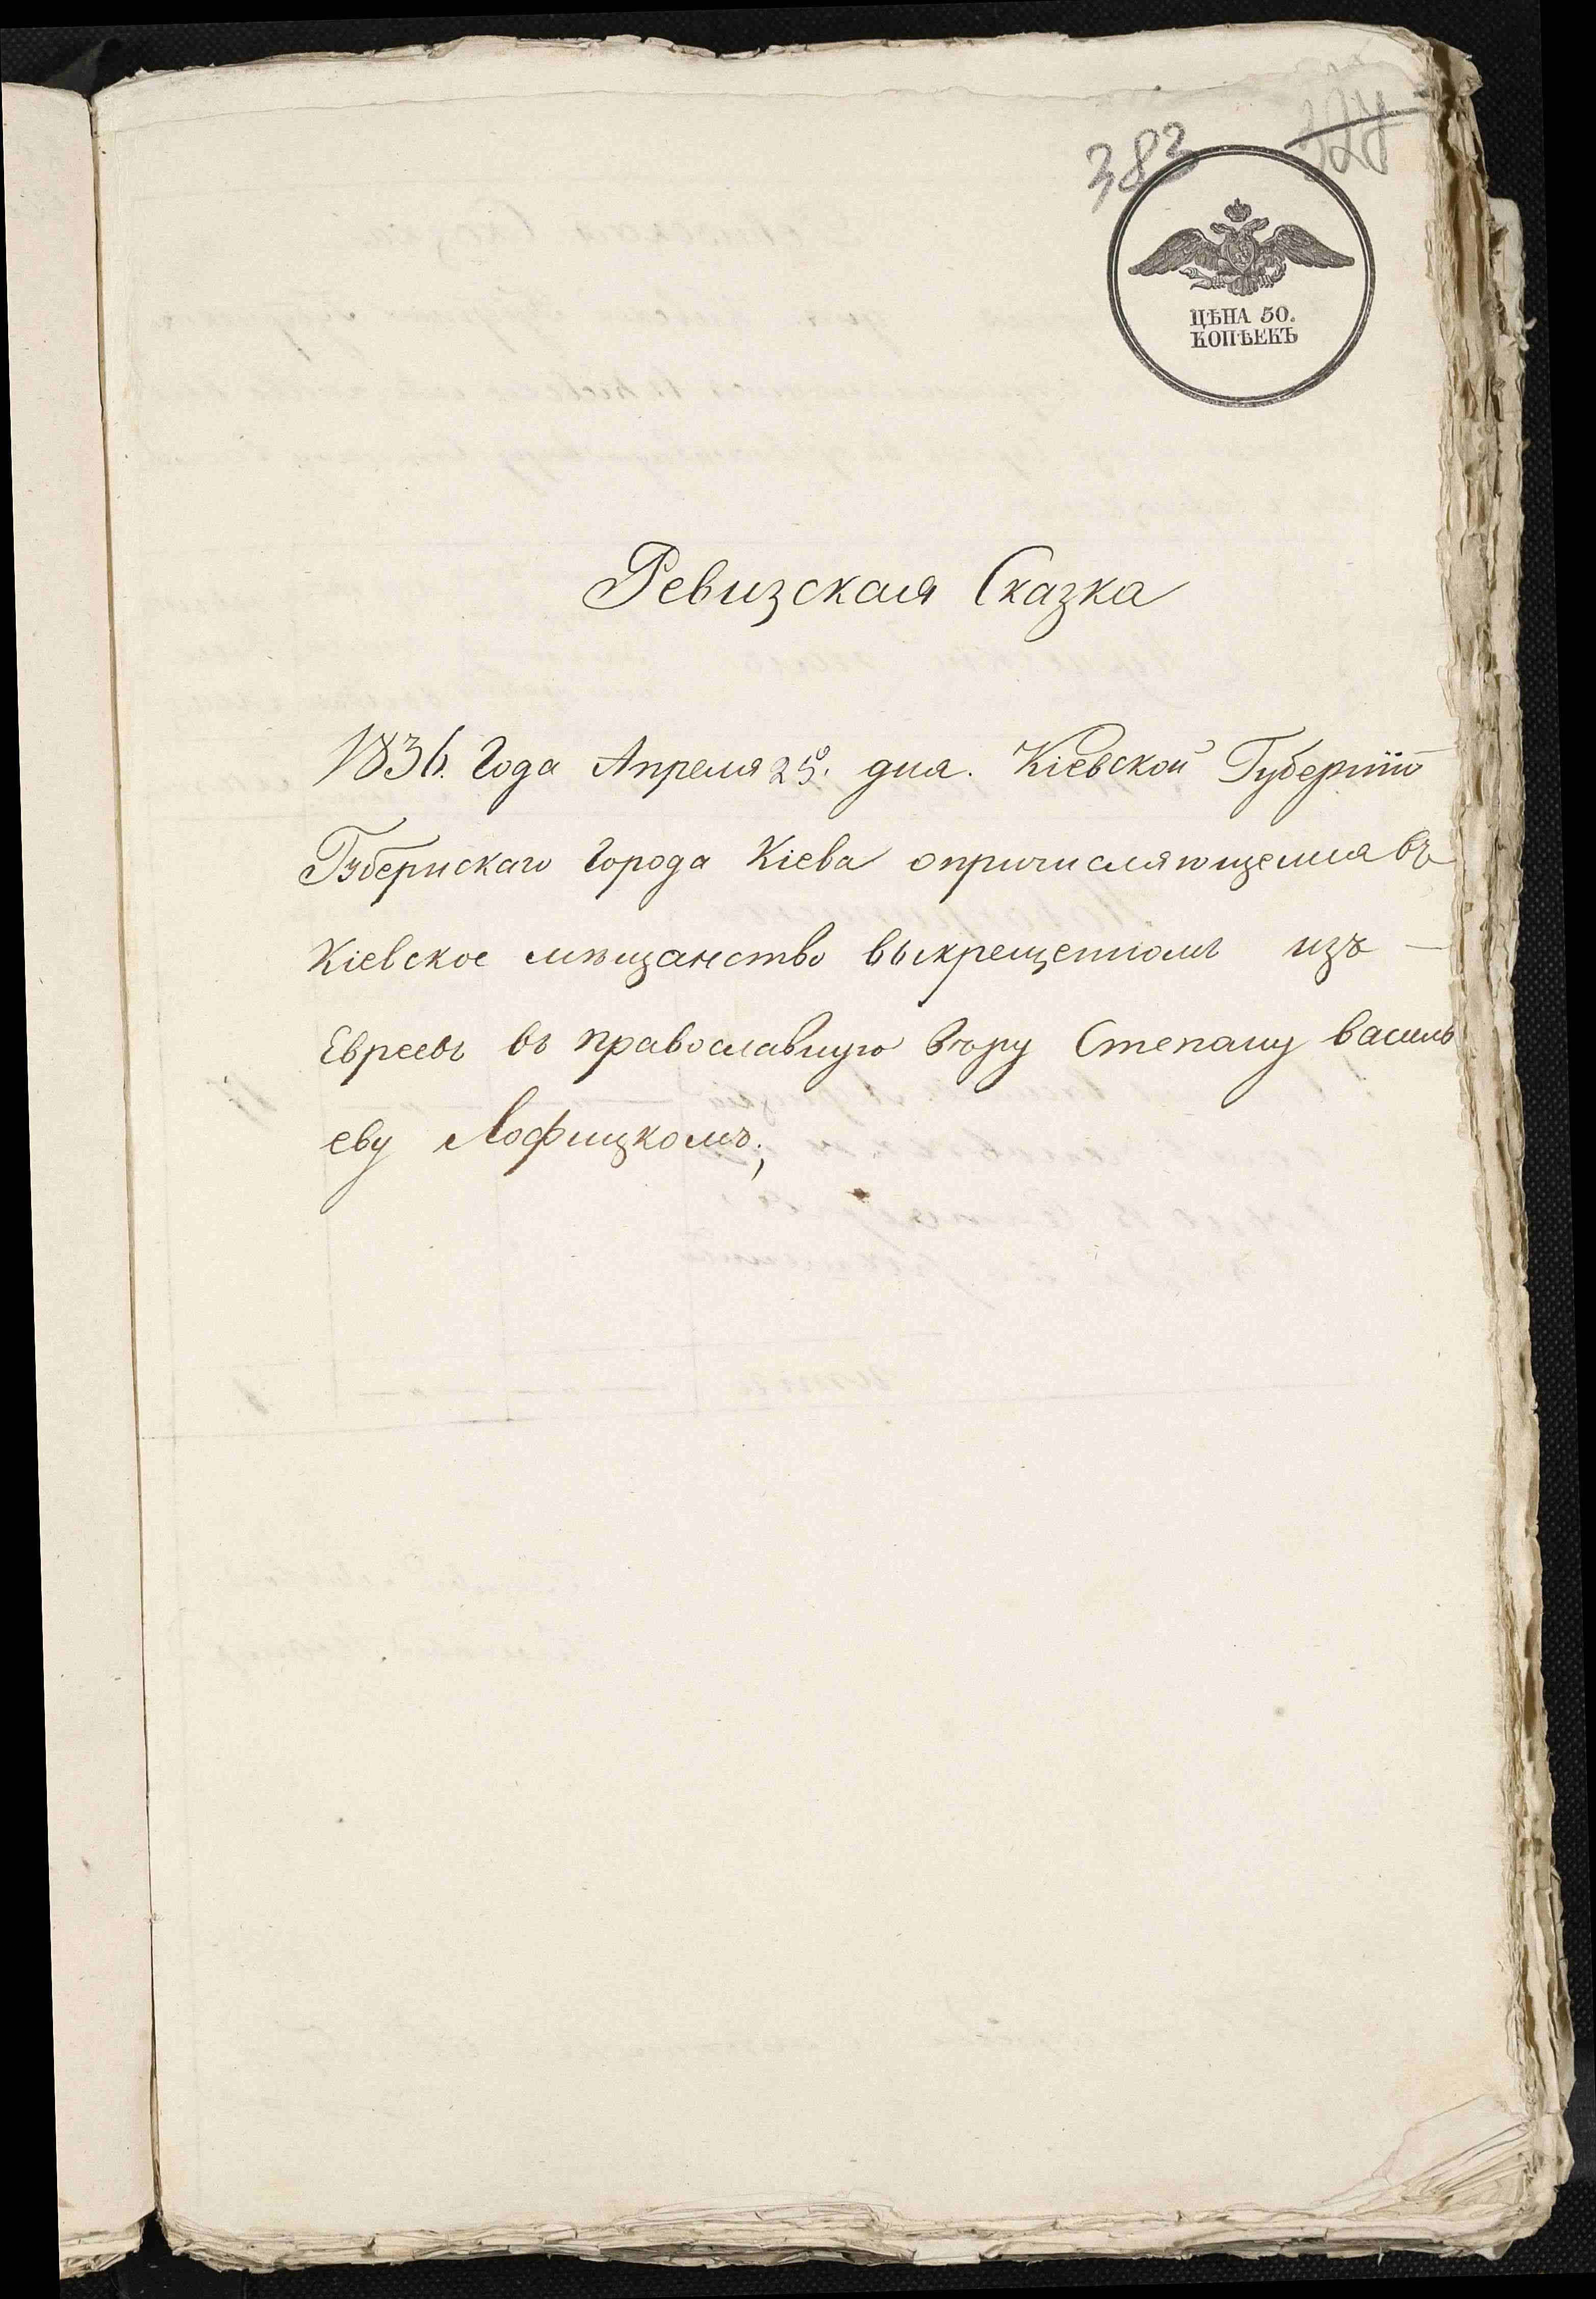 383 324
ЦѢНА 50.
КОПѢЕКЪ
Ревизская Сказка
1836. Года Апреля 25. дня. Кіевской Губерніи
Губернскаго Города Кіева опричисляющемся въ
Кіевское мѣщанство выкрещенномъ изъ —
Евреевъ въ православную вѣру Степану Василь
еву Лофицкомъ;